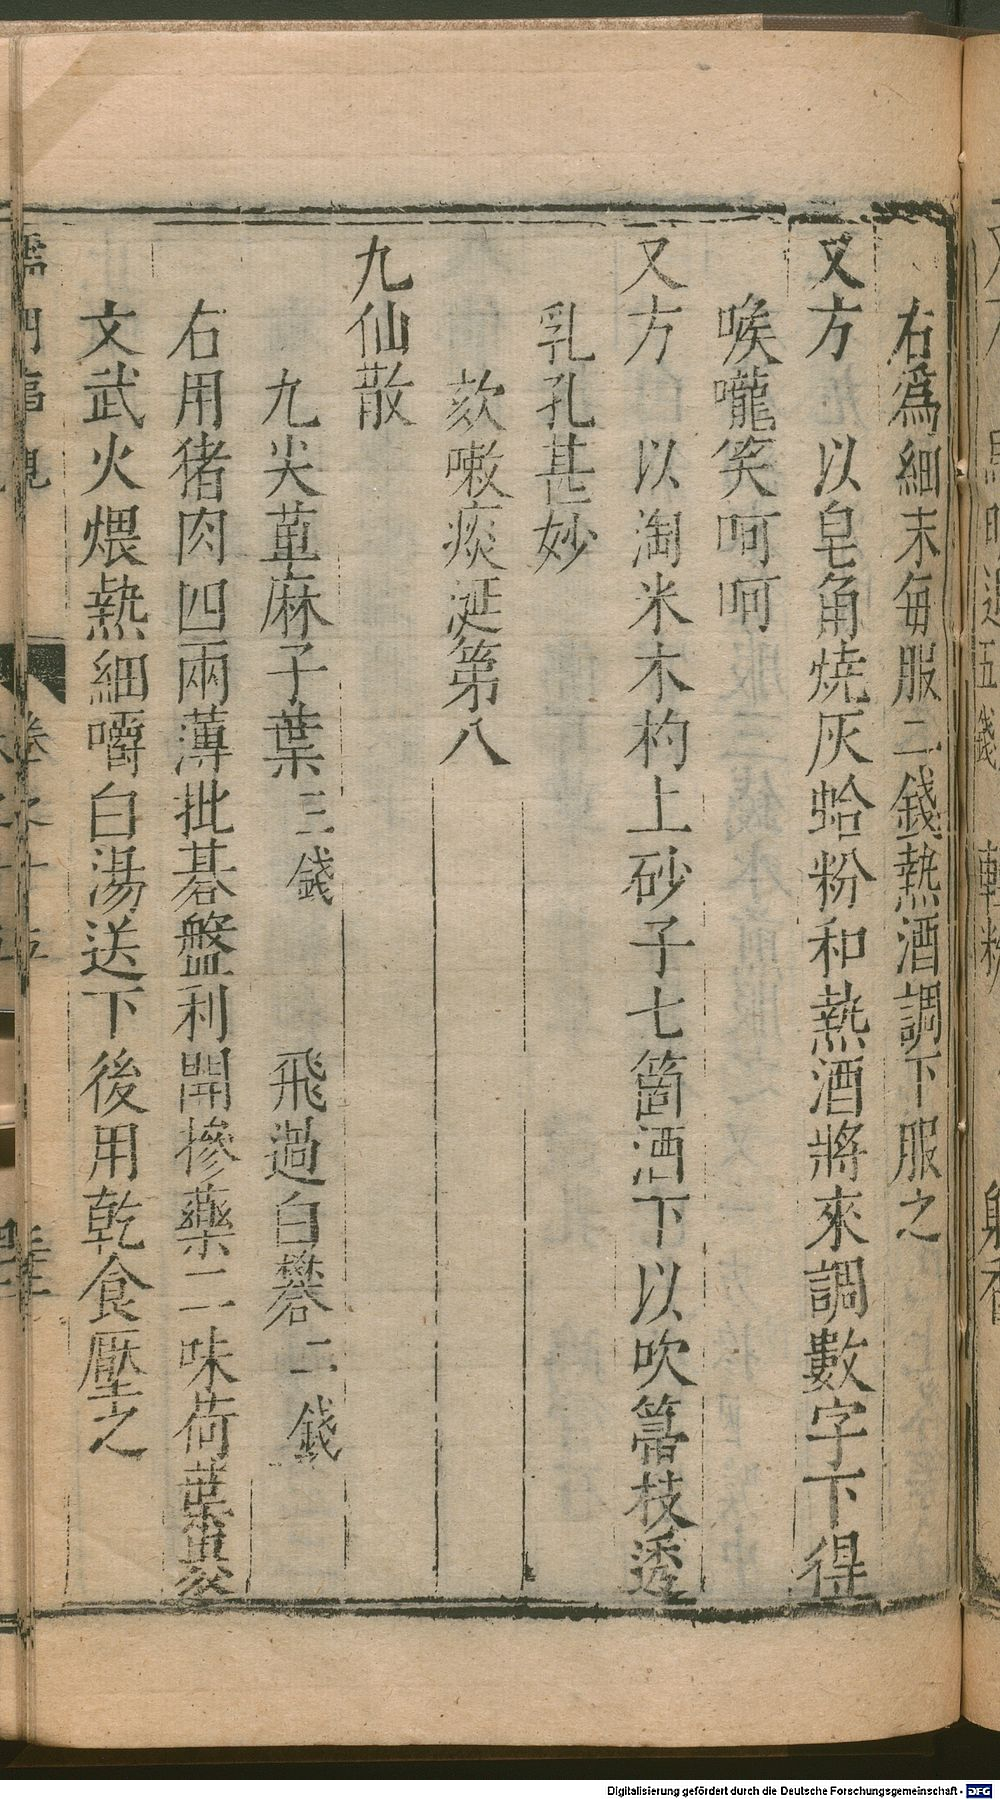 右為細末每服二錢熱酒調下服之
又方　以皂角燒灰蛤粉和熱酒將來調數字下得
喉嚨笑呵呵
又方　以淘米木杓上砂子七箇酒下以吹箒枝透
乳孔甚妙
欬嗽痰涎第八
九仙散
九尖萆麻子葉三錢　飛過白礬二錢
右用猪肉四兩薄批碁盤利開摻藥二味荷葉裹
文武火煨熱細嚼白湯送下後用乾食壓之
Digitalisierung gefördert durch die Deutsche Forschungsgemeinschaft - DFG